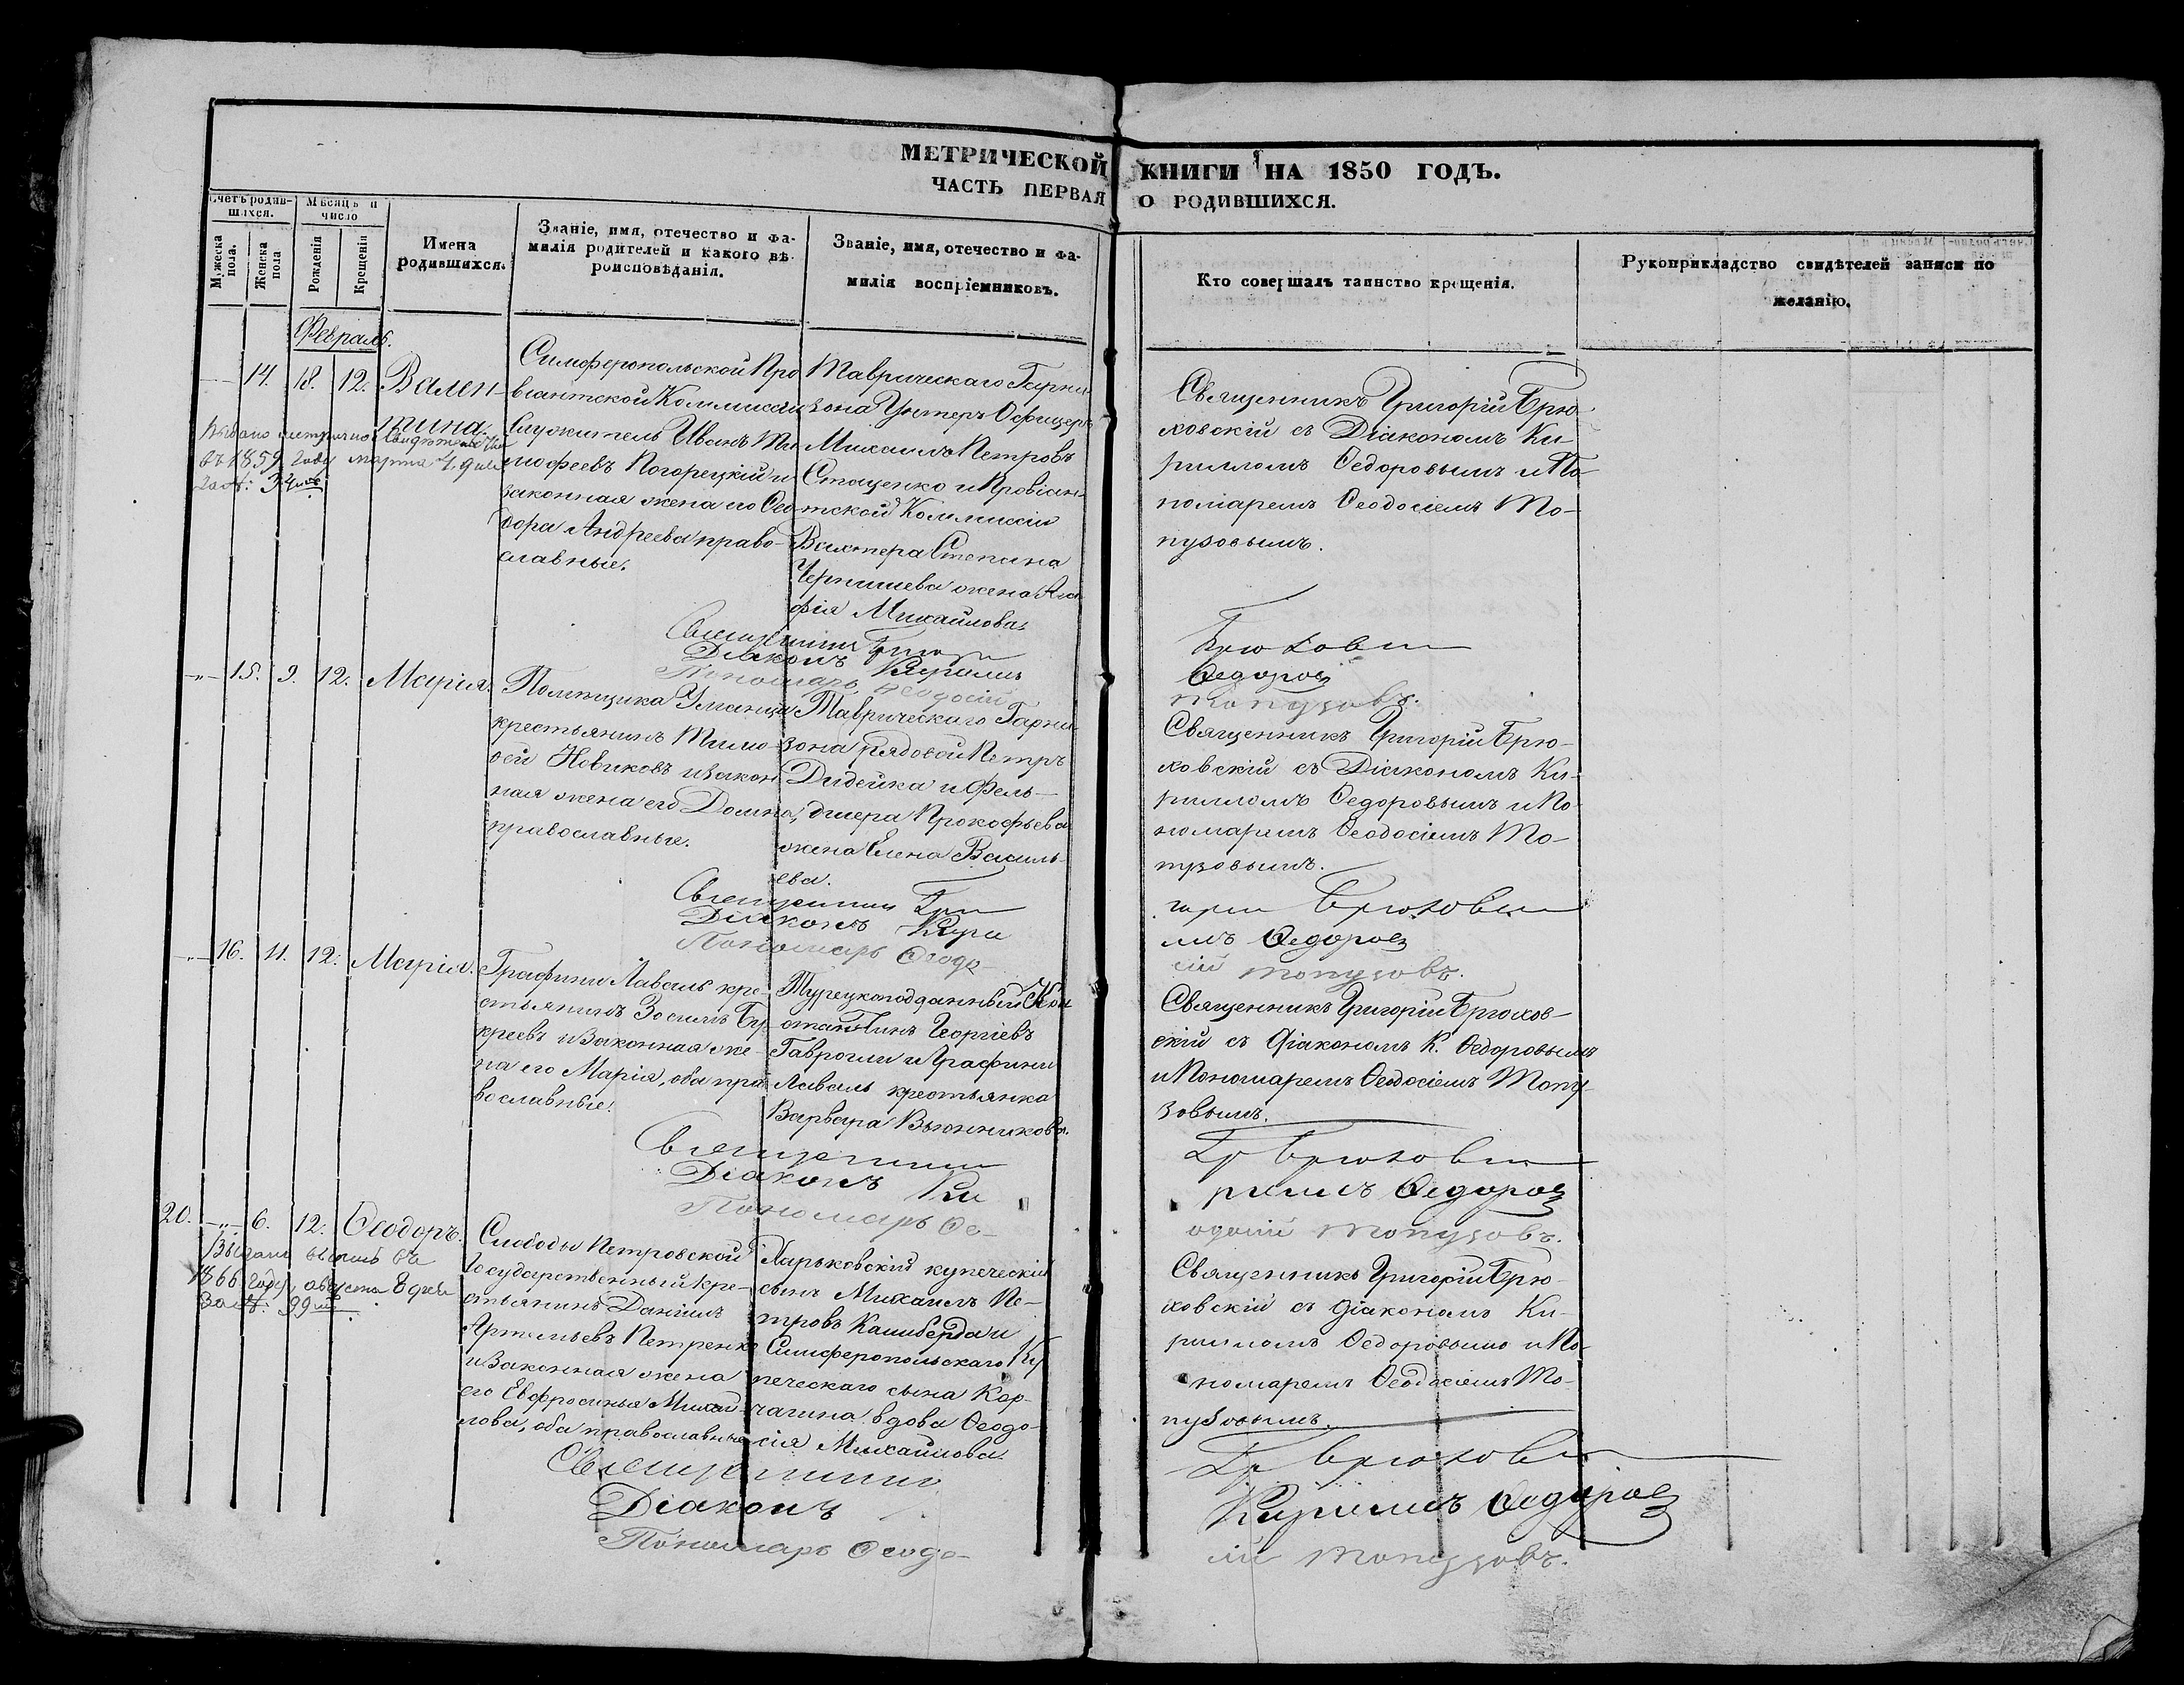 МЕТРИЧЕСКОЙ КНИГИ НА 1850 ГОДЪ.
ЧАСТЬ ПЕРВАЯ О РОДИВШИХСЯ.
Счетъ родив-
шихся.
Мужеска пола.
Женска пола
Мѣсяцъ и
число
Рожденія
Крещенія
Имена
родившихся.
Званіе, имя, отечество и фа-
милія родителей и какого вѣ-
роисповѣданія.
Званіе, имя, отечество и фа-
милія воспріемниковъ.
Кто совершалъ таинство крещенія.
Рукоприкладство свидѣтелей записи по
желанію.
Февраль.
14. 18. 12. Вален-
тина.
въ 1859 году марта 4 дня
Симферопольской Про
віантской Коммиссіи
Служитель Иванъ Ти
мофеевъ Погорецкій и
законная жена его Ѳео
дора Андреева право-
славные.
Таврическаго Гарни
зона Унтеръ Офицеръ
Михаилъ Петровъ
Стоценко и Провіан-
тской Коммиссіи
Вахтера Степана
Чернишева жена
фія Михайлова.
Священникъ Григорій Брю-
ховскій съ Діакономъ Ки-
рилломъ Ѳедоровымъ и По
номаремъ Ѳеодосіемъ То-
пузовымъ.
Священникъ Григо Брюховск
Діаконъ Кирилъ Ѳедоров
Пономарь Ѳеодосій Топузовъ.
-"- 15. 9. 12. Марія.
Помѣщика Уманца
крестьянинъ Тимо-
ѳей Новиковъ и закон
ная жена его Домна,
православные.
Таврическаго Гарни-
зона рядовой Петръ
Дидейка и Фель-
дшера Прокофьева
жена Елена Василь-
ева.
Священникъ Григорій Брю-
ховскій съ Діакономъ Ки-
рилломъ Ѳедоровымъ и По
номаремъ Ѳеодосіемъ То-
пузовымъ.
Священникъ Григорій Брюховск
Діаконъ Кирилъ Ѳедоров
Пономарь Ѳеодосій Топузовъ.
-"- 16. 11. 12. Марія.
Графини Лаваль кре-
стьянинъ Зосимъ Бу-
креевъ и законная же-
на его Марія, оба пра
вославные.
Турецкоподданный Кон
стантинъ Георгіевъ
Гаврогли и Графини
Лаваль крестьянка
Варвара Вьюнникова.
Священникъ Григорій Брюхов-
скій съ Діакономъ К. Ѳедоровымъ
и Пономаремъ Ѳеодосіемъ Топу-
зовымъ.
Священникъ Гр Брюховск
Діаконъ Кирилъ Ѳедоров
Пономарь Ѳеодосій Топузовъ.
20. -"- 6. 12. Ѳеодоръ.
Выдана выпись въ
1866 году августа 8 дня
за №: 99
Слободы Петровской
государственный кре-
стьянинъ Даніилъ
Артемьевъ Петренко
и законная жена
его Евфросинья Михай-
лова, оба православные
Харьковскій купеческій
сынъ Михаилъ Пе-
тровъ Камберда и
Симферопольскаго Ку
печескаго сына Кор-
чагина вдова Ѳеодо-
сія Михайлова.
Священникъ Григорій Брю-
ховскій съ Діакономъ Ки-
рилломъ Ѳедоровымъ и По-
номаремъ Ѳеодосіемъ То-
пузовымъ.
Священникъ Гр Брюховск
Діаконъ Кирилъ Ѳедоров
Пономарь Ѳеодосій Топузовъ.